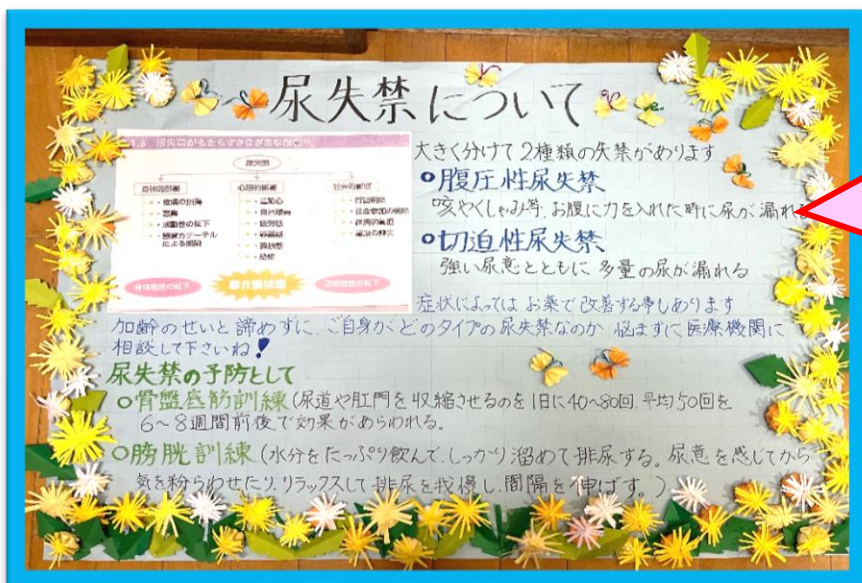 尿失禁について
尿失禁がもたらすさまざまな影響
尿失禁
身体的影響
心理的影響
社会的影響
・皮膚の損傷
・活動性の低下
・膀胱カテーテル
による
・羞恥心
・行動制限
・社会参加の制限
・経済的負担
身体機能の低下
要介護状態
認知機能の低下
大きく分けて2種類の失禁があります
○腹圧性尿失禁
咳やくしゃみ等、お腹に力を入れた時に尿が漏れる
○切迫性尿失禁
強い尿意とともに多量の尿が漏れる
症状によってはお薬で改善する事もあります
加齢のせいと諦めずに、ご自身がどのタイプの尿失禁なのか悩まずに医療機関に
相談して下さいね!
尿失禁の予防として
○骨盤底筋訓練(尿道や肛門を収縮させるのを1日に40~80回、平均50回を
6~8週間前後で効果があらわれる。
○膀胱訓練(水分をたっぷり飲んで、しっかり溜めて排尿する。尿意を感じてから
気を紛らわせたり、リラックスして排尿を我慢し、間隔を伸ばす。)